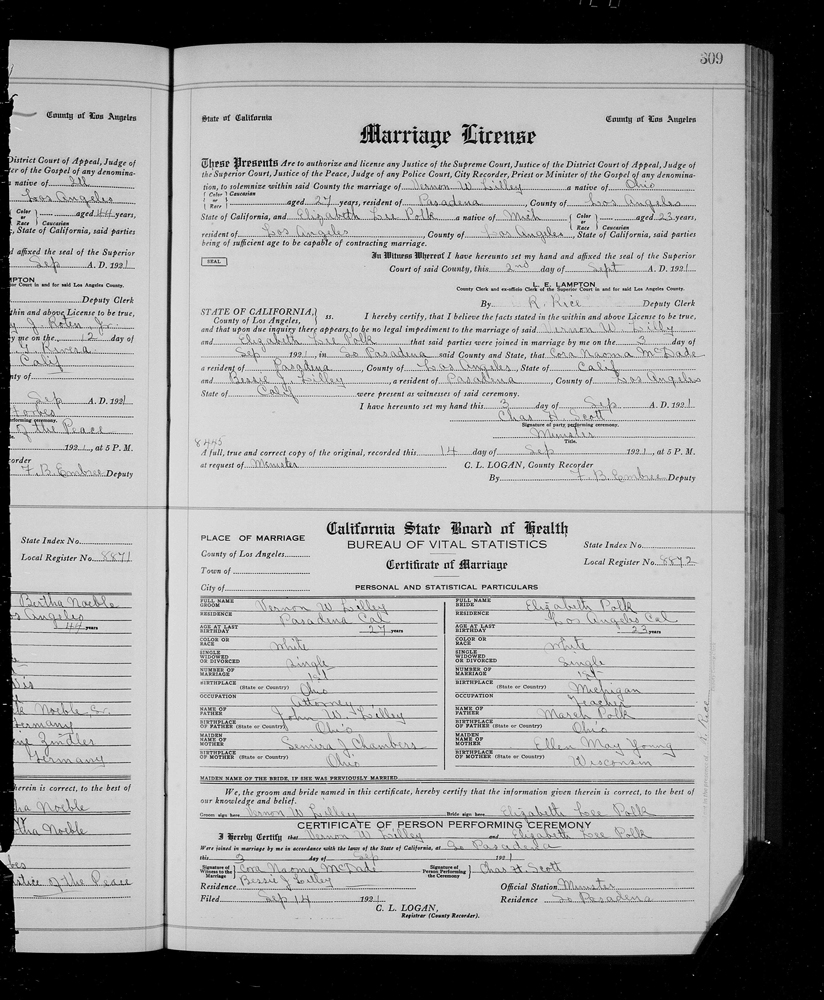 609
County of Los Angeles
District Court of Appeal, Judge of
of the Gospel of any denomina-
native of Ill
Los Angeles
Color or Race } Caucasian aged 44 years,
State of California, said parties
affixed the seal of the Superior
Sep A. D. 1921
Deputy Clerk
within and above License to be true,
J. Roten, Jr.
me on the 12 day of
Calif
Sep A. D. 1921
of the Peace
1921, at 5 P. M.
F. B. Embree Deputy
State Index No.
Local Register No. 8871
Bertha Noeble
Los Angeles
44 years
Noeble Sr
Germany
Zindler
Germany
herein is correct, to the best of
Noeble
Noeble
Justice of the Peace
State of California County of Los Angeles
Marriage License
These Presents Are to authorize and license any Justice of the Supreme Court, Justice of the District Court of Appeal, Judge of
the Superior Court, Justice of the Peace, Judge of any Police Court, City Recorder, Priest or Minister of the Gospel of any denomina-
tion, to solemnize within said County the marriage of Vernon W. Lilley a native of Ohio
{ Color or Race } Caucasian aged 27 years, resident of Pasadena, County of Los Angeles
State of California, and Elizabeth Lee Polk a native of Mich { Color or Race } Caucasian aged 23 years,
resident of Los Angeles, County of Los Angeles, State of California, said parties
being of sufficient age to be capable of contracting marriage.
In Witness Whereof I have hereunto set my hand and affixed the seal of the Superior
SEAL
Court of said County, this 2nd day of Sept A. D. 1921
L. E. LAMPTON
County Clerk and ex-officio Clerk of the Superior Court in and for said Los Angeles County.
By R. Rice Deputy Clerk
STATE OF CALIFORNIA, } ss.
County of Los Angeles, I hereby certify, that I believe the facts stated in the within and above License to be true,
and that upon due inquiry there appears to be no legal impediment to the marriage of said Vernon W. Lilly
and Elizabeth Lee Polk that said parties were joined in marriage by me on the 3 day of
Sep 1921, in So Pasadena said County and State, that Cora Naoma McDade
a resident of Pasadena, County of Los Angeles, State of Calif
and Bessie J. Lilley, a resident of Pasadena, County of Los Angeles
State of Calif were present as witnesses of said ceremony.
I have hereunto set my hand this 3 day of Sep A. D. 1921
Chas H. Scott
Signature of party performing ceremony.
Minister
Title.
8445
A full, true and correct copy of the original, recorded this 14 day of Sep 1921, at 5 P. M.
at request of Minister C. L. LOGAN, County Recorder
By F. B. Embree Deputy
California State Board of Health
PLACE OF MARRIAGE BUREAU OF VITAL STATISTICS State Index No.
County of Los Angeles Certificate of Marriage Local Register No. 8872
Town of
City of PERSONAL AND STATISTICAL PARTICULARS
FULL NAME GROOM Vernon W Lilley
RESIDENCE Pasadena Cal
AGE AT LAST BIRTHDAY 27 years
COLOR OR RACE white
SINGLE WIDOWED OR DIVORCED single
NUMBER OF MARRIAGE 1st
BIRTHPLACE (State or Country) Ohio
OCCUPATION Attorney
NAME OF FATHER John W. Lilley
BIRTHPLACE OF FATHER (State or Country) Ohio
MAIDEN NAME OF MOTHER Semira J Chambers
BIRTHPLACE OF MOTHER (State or Country) Ohio
FULL NAME BRIDE Elizabeth Polk
RESIDENCE Los Angeles Cal
AGE AT LAST BIRTHDAY 23 years
COLOR OR RACE white
SINGLE WIDOWED OR DIVORCED Single
NUMBER OF MARRIAGE 1st
BIRTHPLACE (State or Country) Michigan
OCCUPATION Teacher
NAME OF FATHER March Polk
BIRTHPLACE OF FATHER (State or Country) Ohio
MAIDEN NAME OF MOTHER Ellen May Young
BIRTHPLACE OF MOTHER (State or Country) Wisconsin
MAIDEN NAME OF THE BRIDE, IF SHE WAS PREVIOUSLY MARRIED
We, the groom and bride named in this certificate, hereby certify that the information given therein is correct, to the best of
our knowledge and belief.
Groom sign here Vernon W Lilley Bride sign here Elizabeth Lee Polk
CERTIFICATE OF PERSON PERFORMING CEREMONY
I Hereby Certify that Vernon W Lilley and Elizabeth Lee Polk
Were joined in marriage by me in accordance with the laws of the State of California, at So Pasadena
this 3 day of Sep 1921
Signature of Witness to the Marriage } Cora Naoma McDade Signature of Person Performing the Ceremony } Chas H. Scott
Bessie J Lilley
Residence Official Station Minister
Filed Sep 14 1921 Residence So Pasadena
C. L. LOGAN,
Registrar (County Recorder).